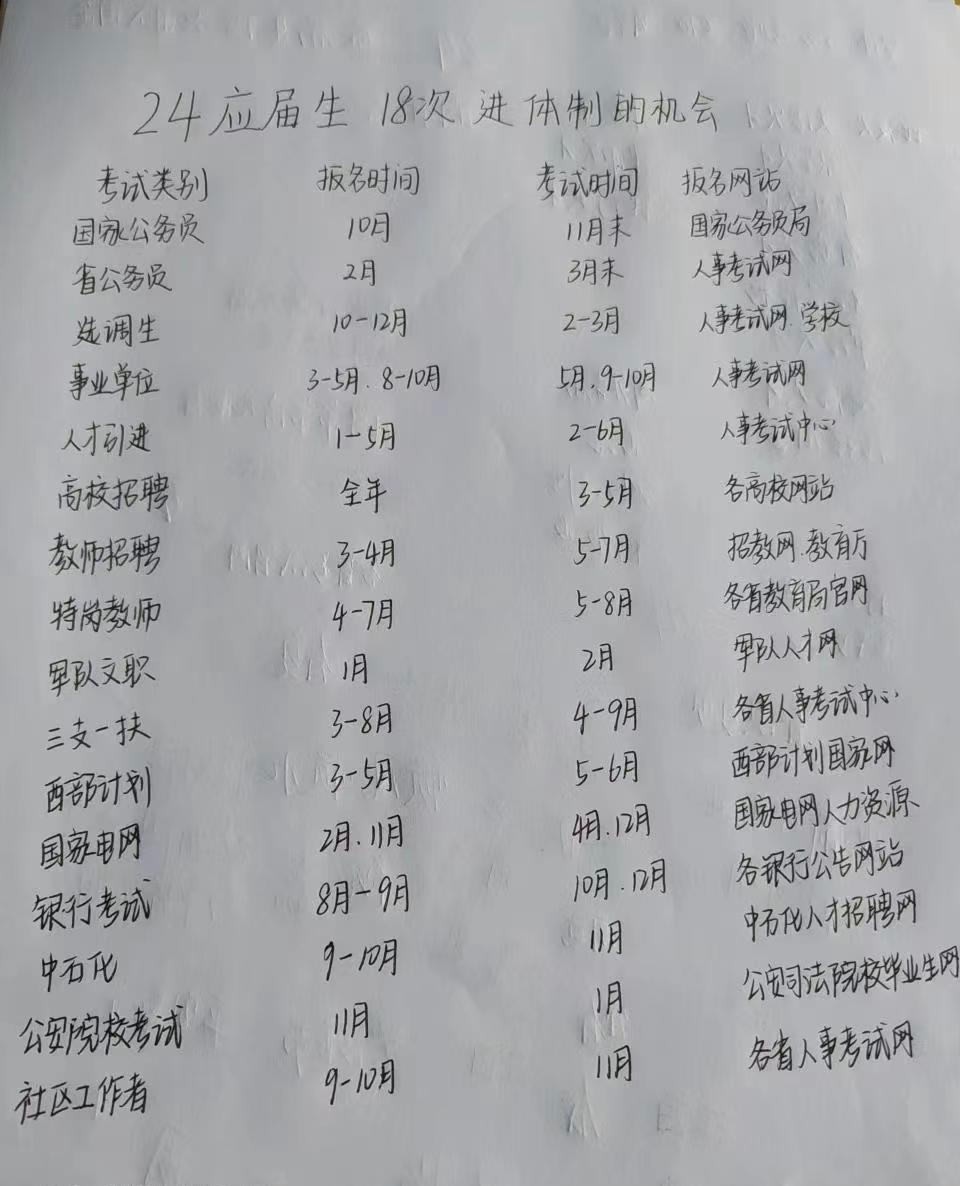 24应届生 18次 进体制的机会
考试类别 报名时间 考试时间 报名网站
国家公务员 10月 11月末 国家公务员局
省公务员 2月 3月末 人事考试网
选调生 10-12月 2-3月 人事考试网.学校
事业单位 3-5月.8-10月 5月.9-10月 人事考试网
人才引进 1-5月 2-6月 人事考试中心
高校招聘 全年 3-5月 各高校网站
教师招聘 3-4月 5-7月 招教网.教育厅
特岗教师 4-7月 5-8月 各省教育局官网
军队文职 1月 2月 军队人才网
三支一扶 3-8月 4-9月 各省人事考试中心
西部计划 3-5月 5-6月 西部计划国家网
国家电网 2月.11月 4月.12月 国家电网人力资源
银行考试 8月-9月 10月.12月 各银行公告网站
中石化 9-10月 11月 中石化人才招聘网
公安院校考试 11月 1月 公安司法院校毕业生网
社区工作者 9-10月 11月 各省人事考试网